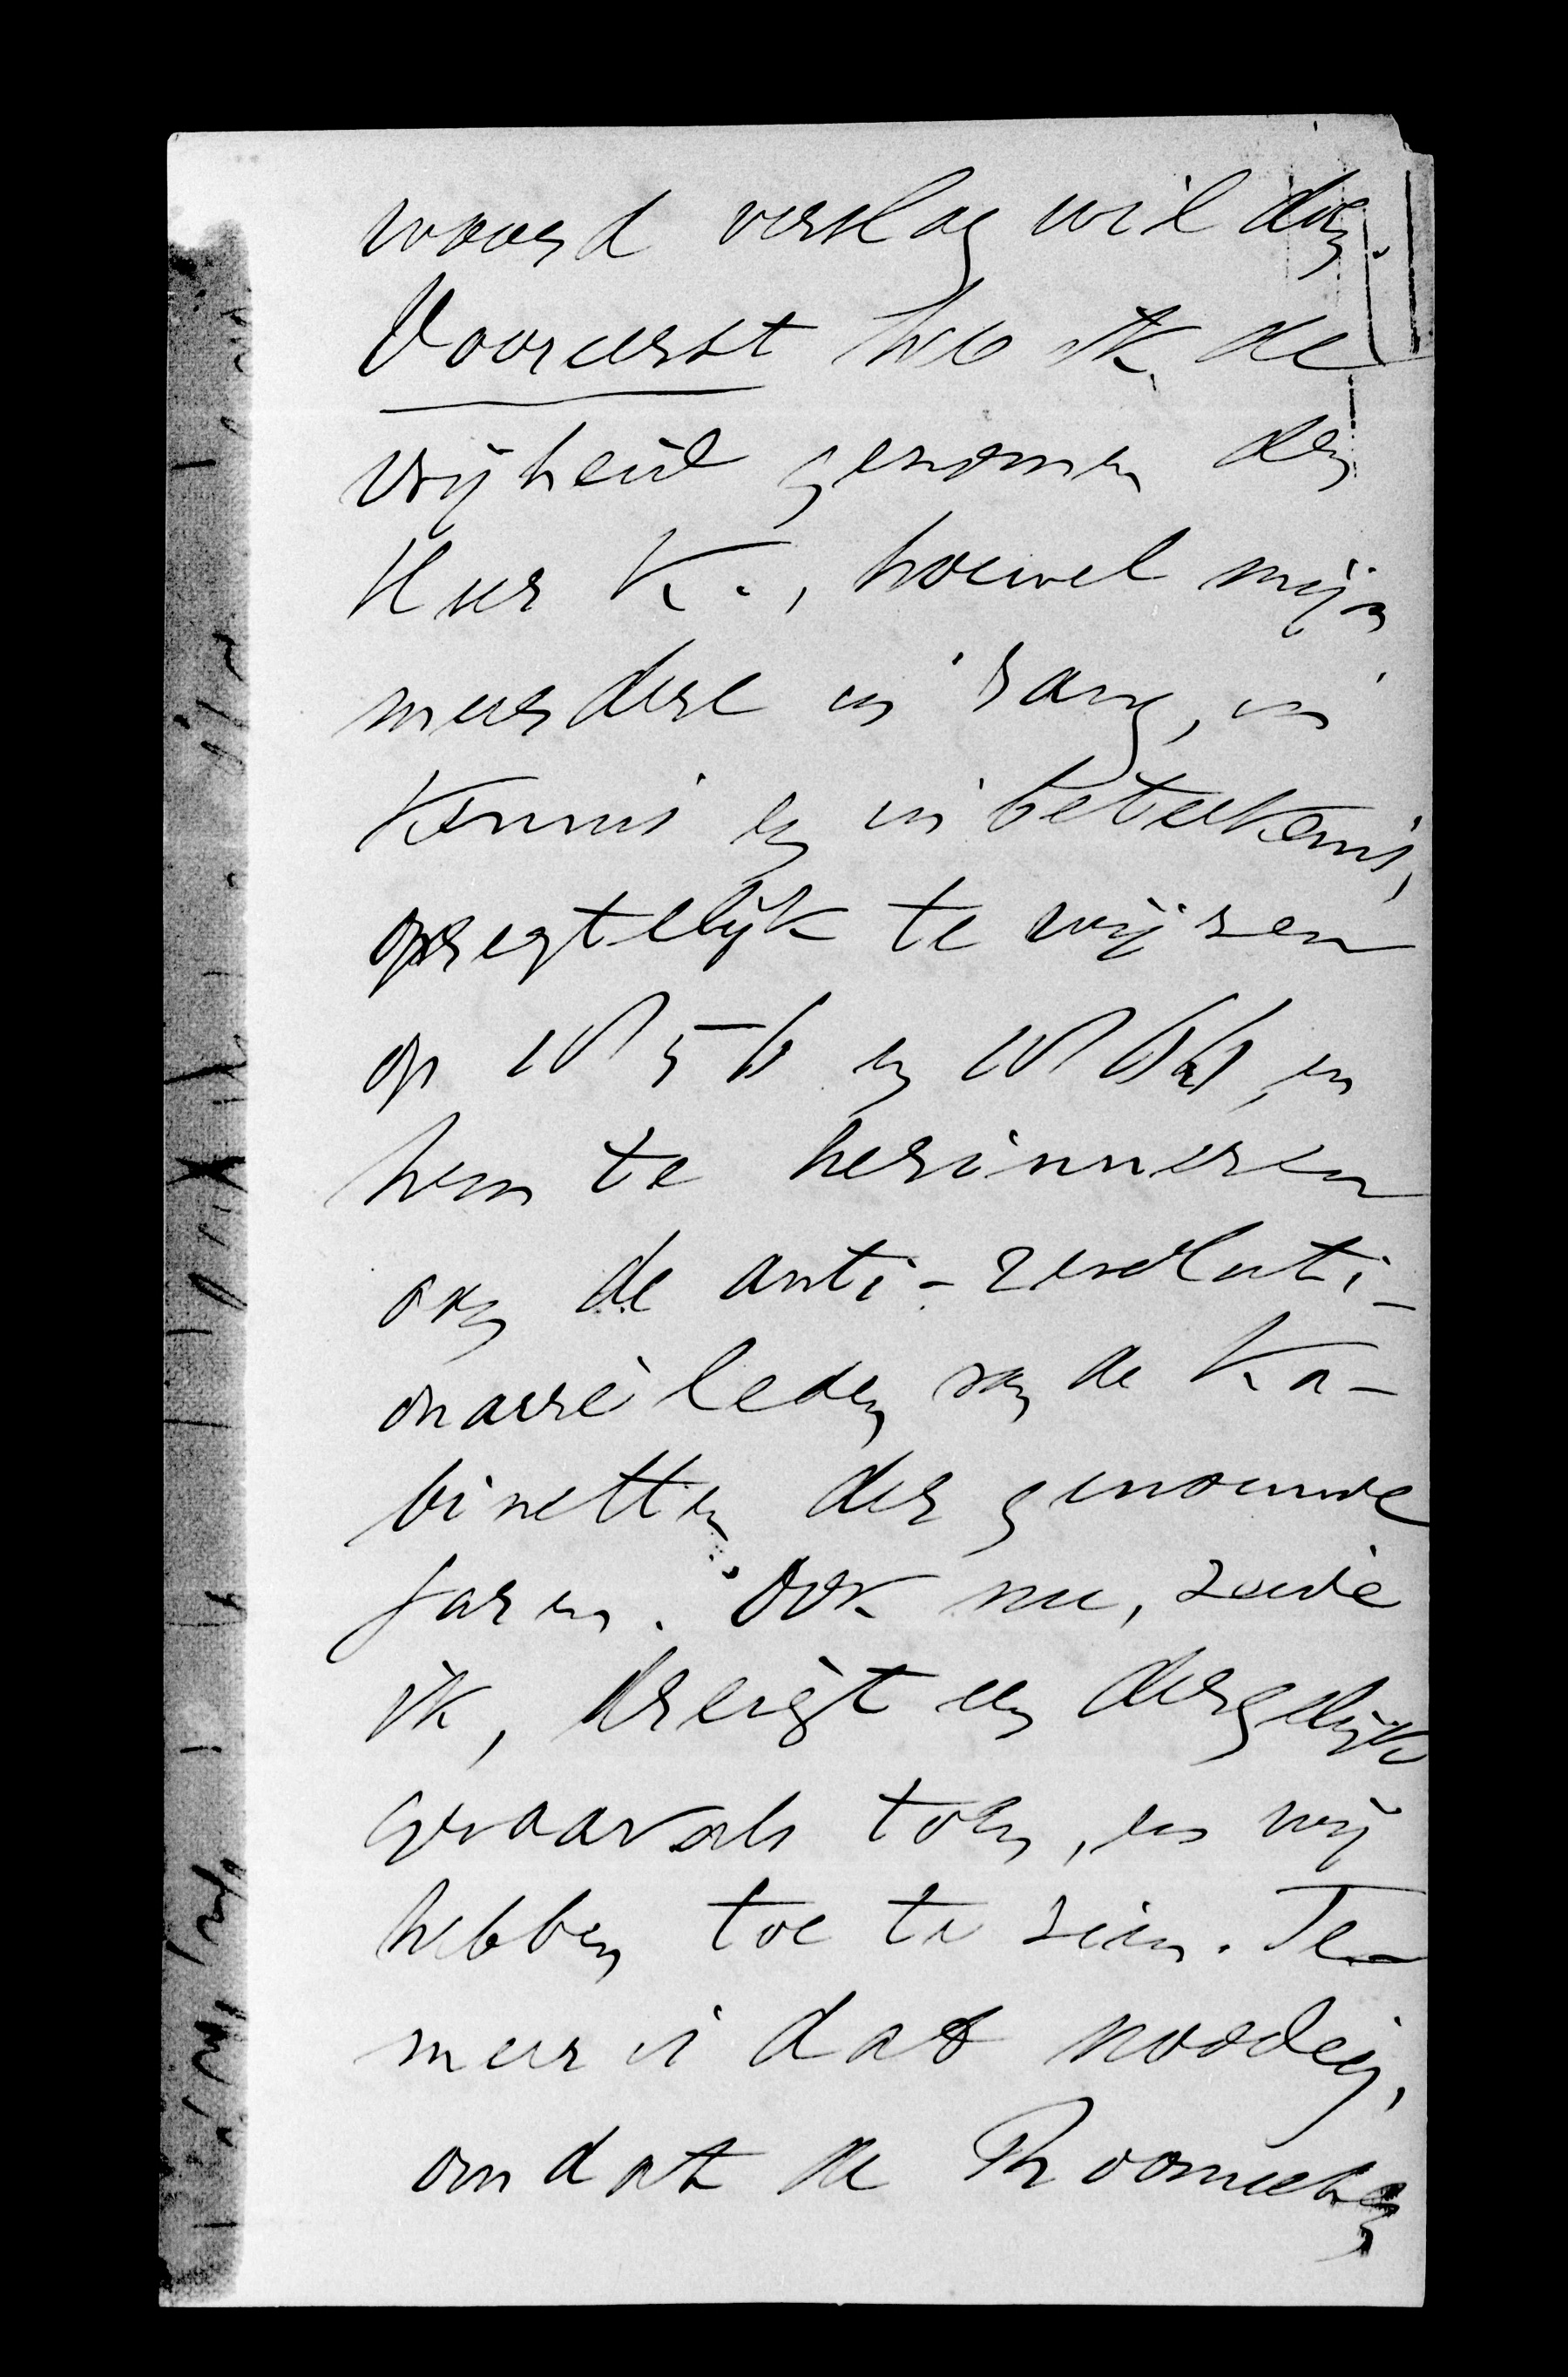 woord verslag wil doen.
Vooreerst heb ik de
vrijheid genomen den
Heer K., hoewel mijn
meerdere in rang, in
kennis en in beteekenis,
opregtelijk te wijzen
op 1856 en 1866, en
hem te herinneren
aan de anti-revoluti-
onaire leden van de Ka-
binetten der genoemde
jaren. Ook nu, zeide
ik, dreigt een dergelijk
gevaar als toen, en wij
hebben toe te zien. Te
meer is dat noodig,
omdat de Roomschen